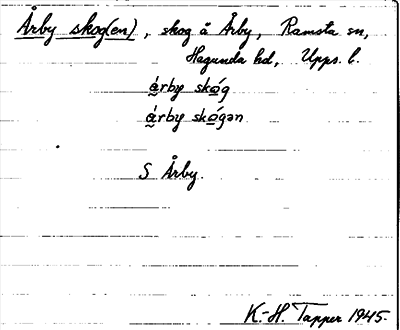 Årby skog(en), skog å Årby, Ramsta sn,
Hagunda hd, Upps. l.
árby skóg
árby skógən
S Årby.
K.-H. Tapper 1945.